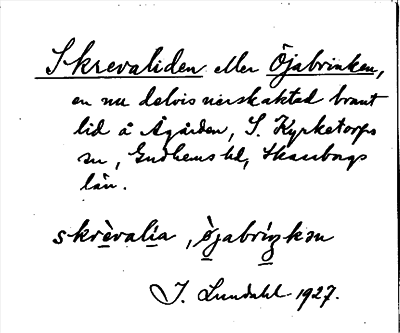 Skrevaliden eller Öjabrinken,
en nu delvis nerskaktad brant
lid å Ågården, S. Kyrketorps
sn, Gudhems hd, Skaraborgs
län.
skrèvalia, òjabriŋkən
I. Lundahl 1927.